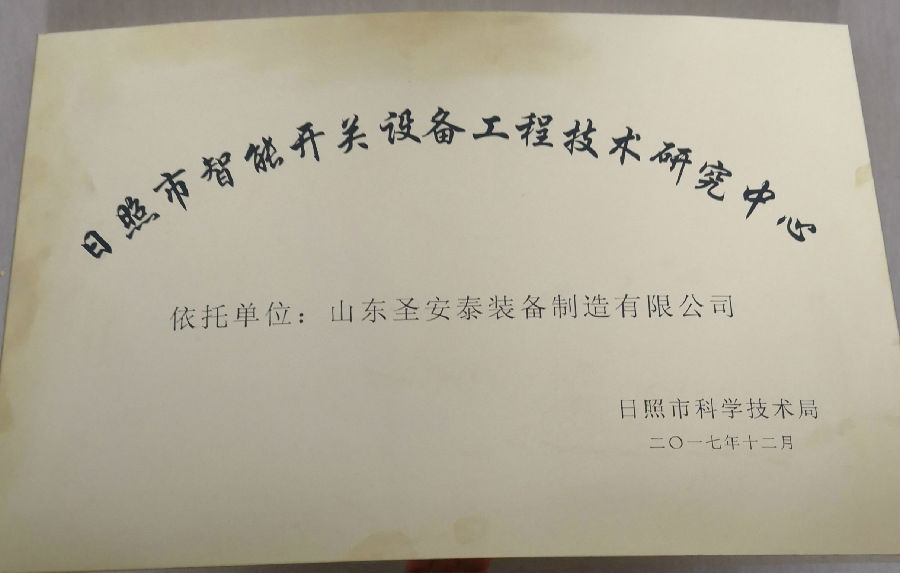 日照市智能开关设备工程技术研究中心
依托单位：山东圣安泰装备制造有限公司
日照市科学技术局
二〇一七年十二月